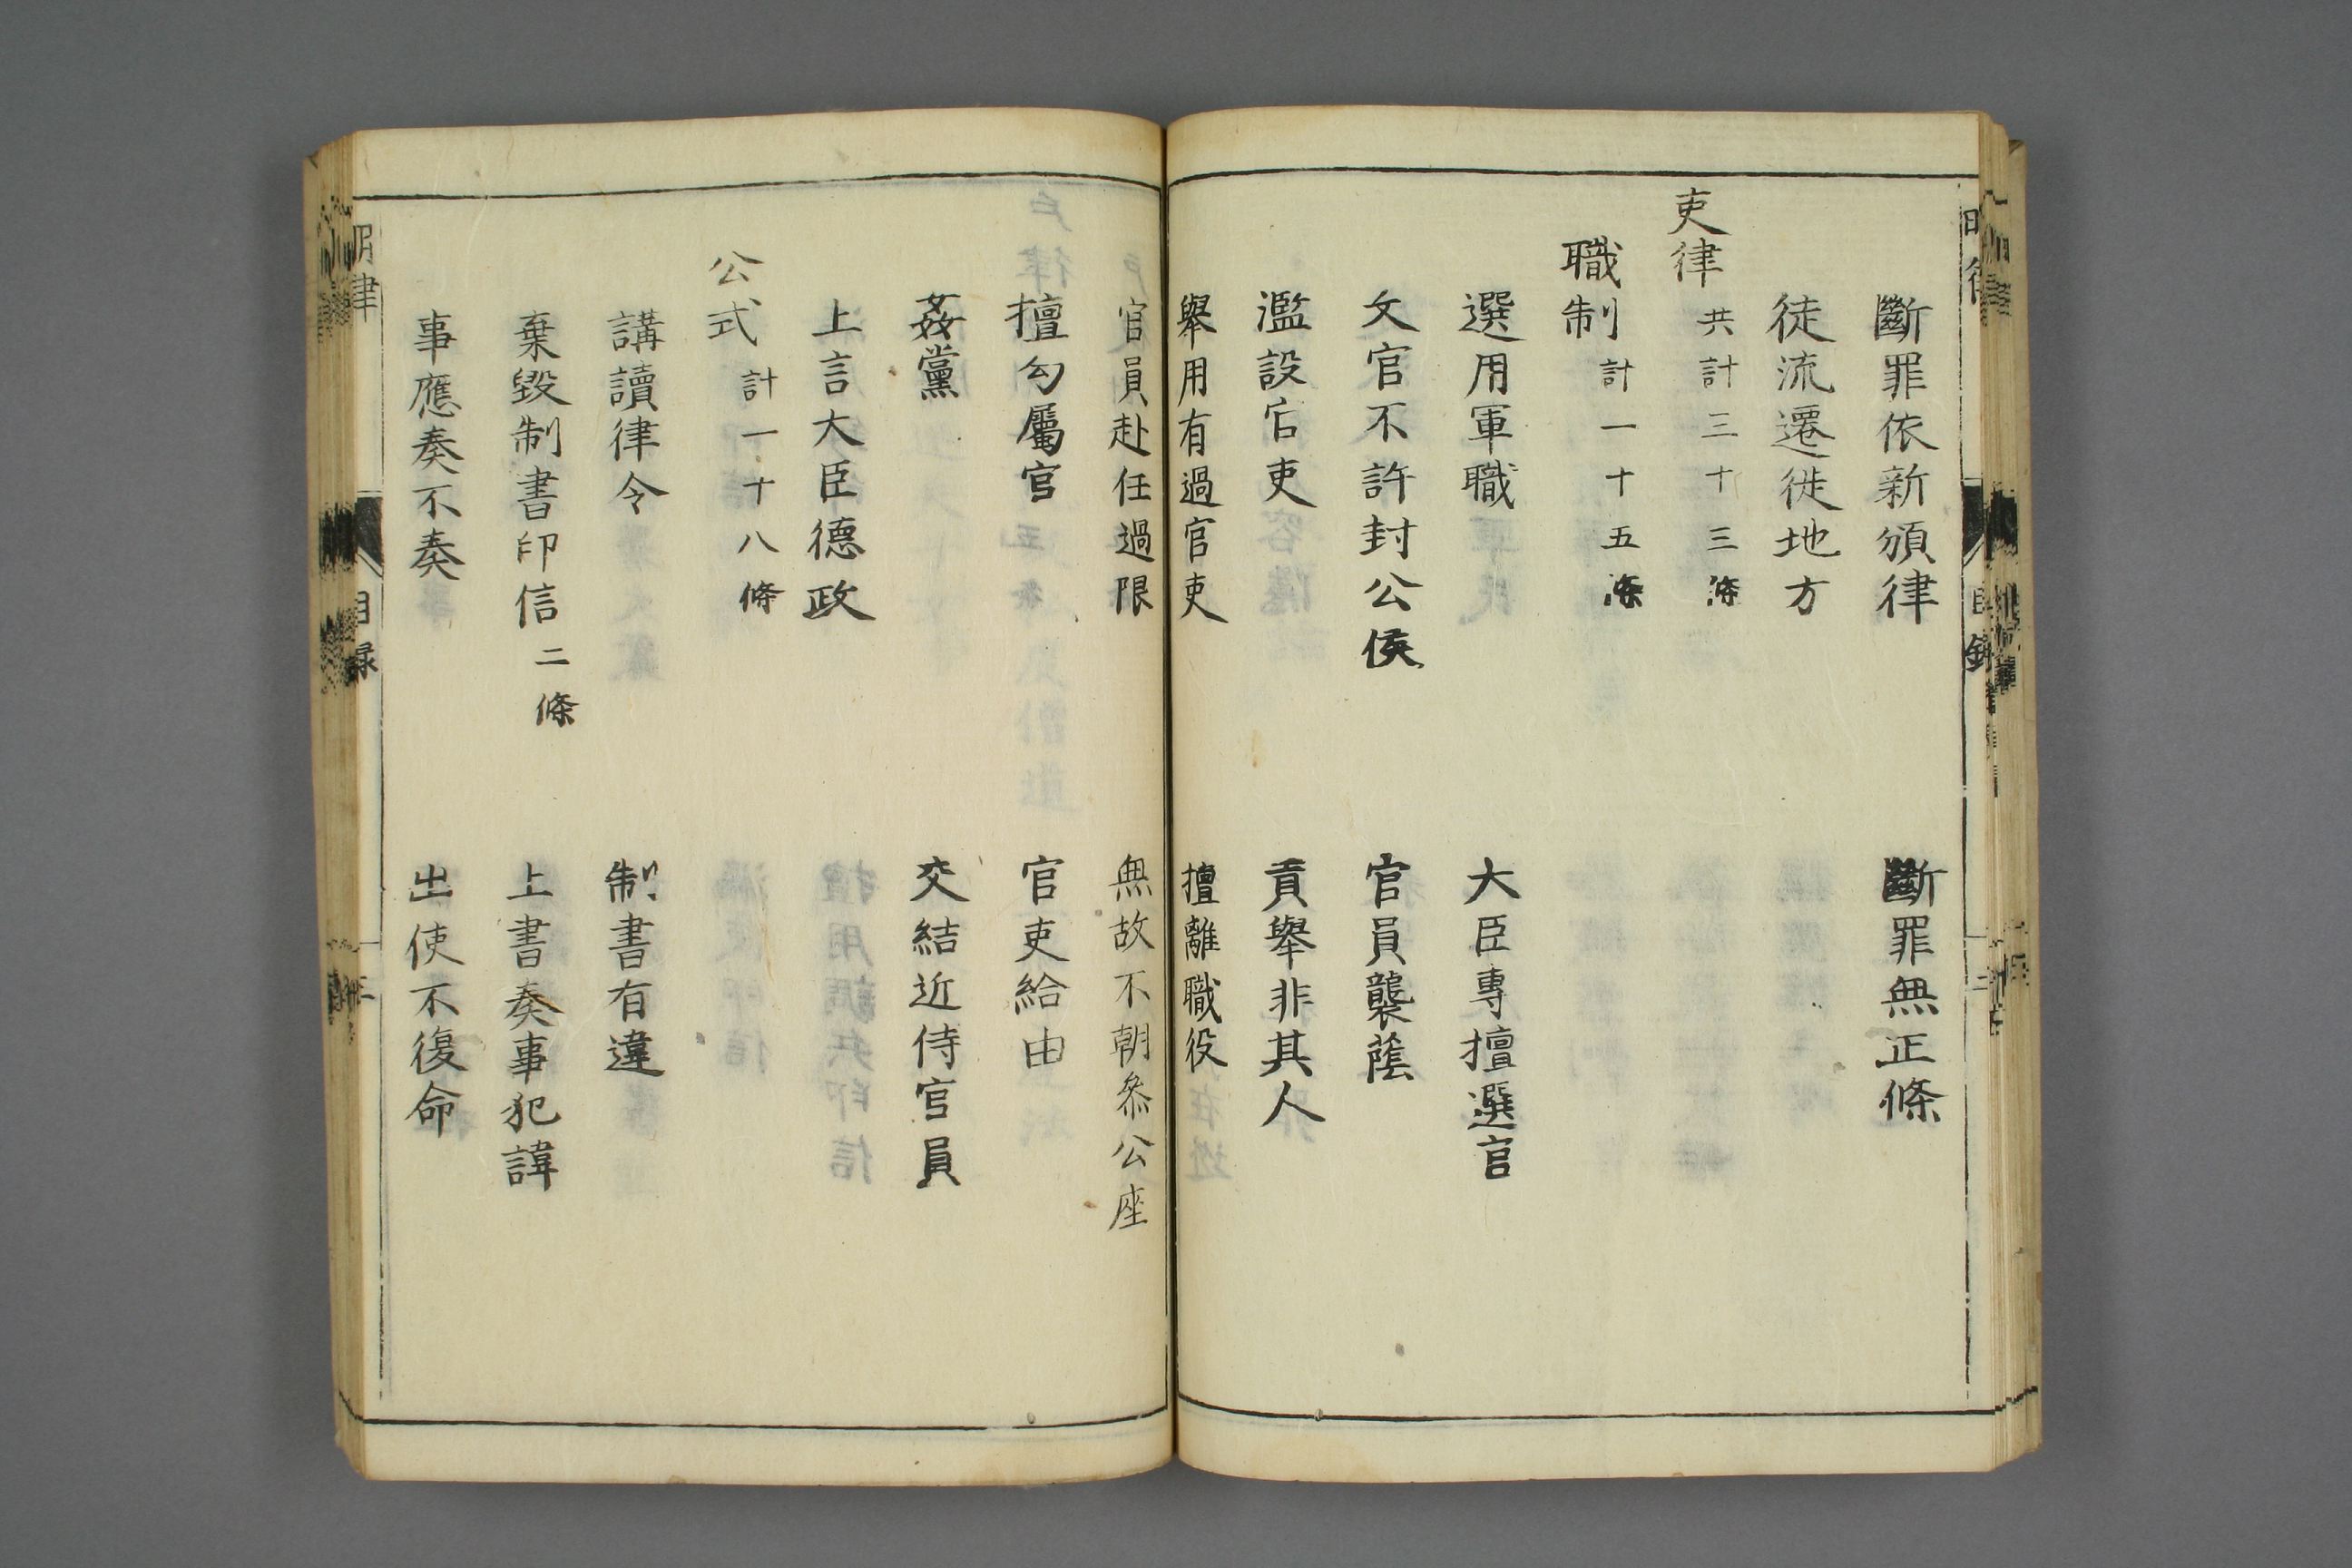 斷罪依新頒律　斷罪無正條
徒流遷徙地方
吏律 共計三十三條
職制 計一十五條
選用軍職　大臣專擅選官
文官不許封公侯　官員襲蔭
濫設官吏　貢舉非其人
舉用有過官吏　擅離職役
官員赴任過限　無故不朝參公座
擅勾屬官　官吏給由
姦黨　交結近侍官員
上言大臣德政
公式 計一十八條
講讀律令　制書有違
棄毀制書印信 二條　上書奏事犯諱
事應奏不奏　出使不復命
明律　目録